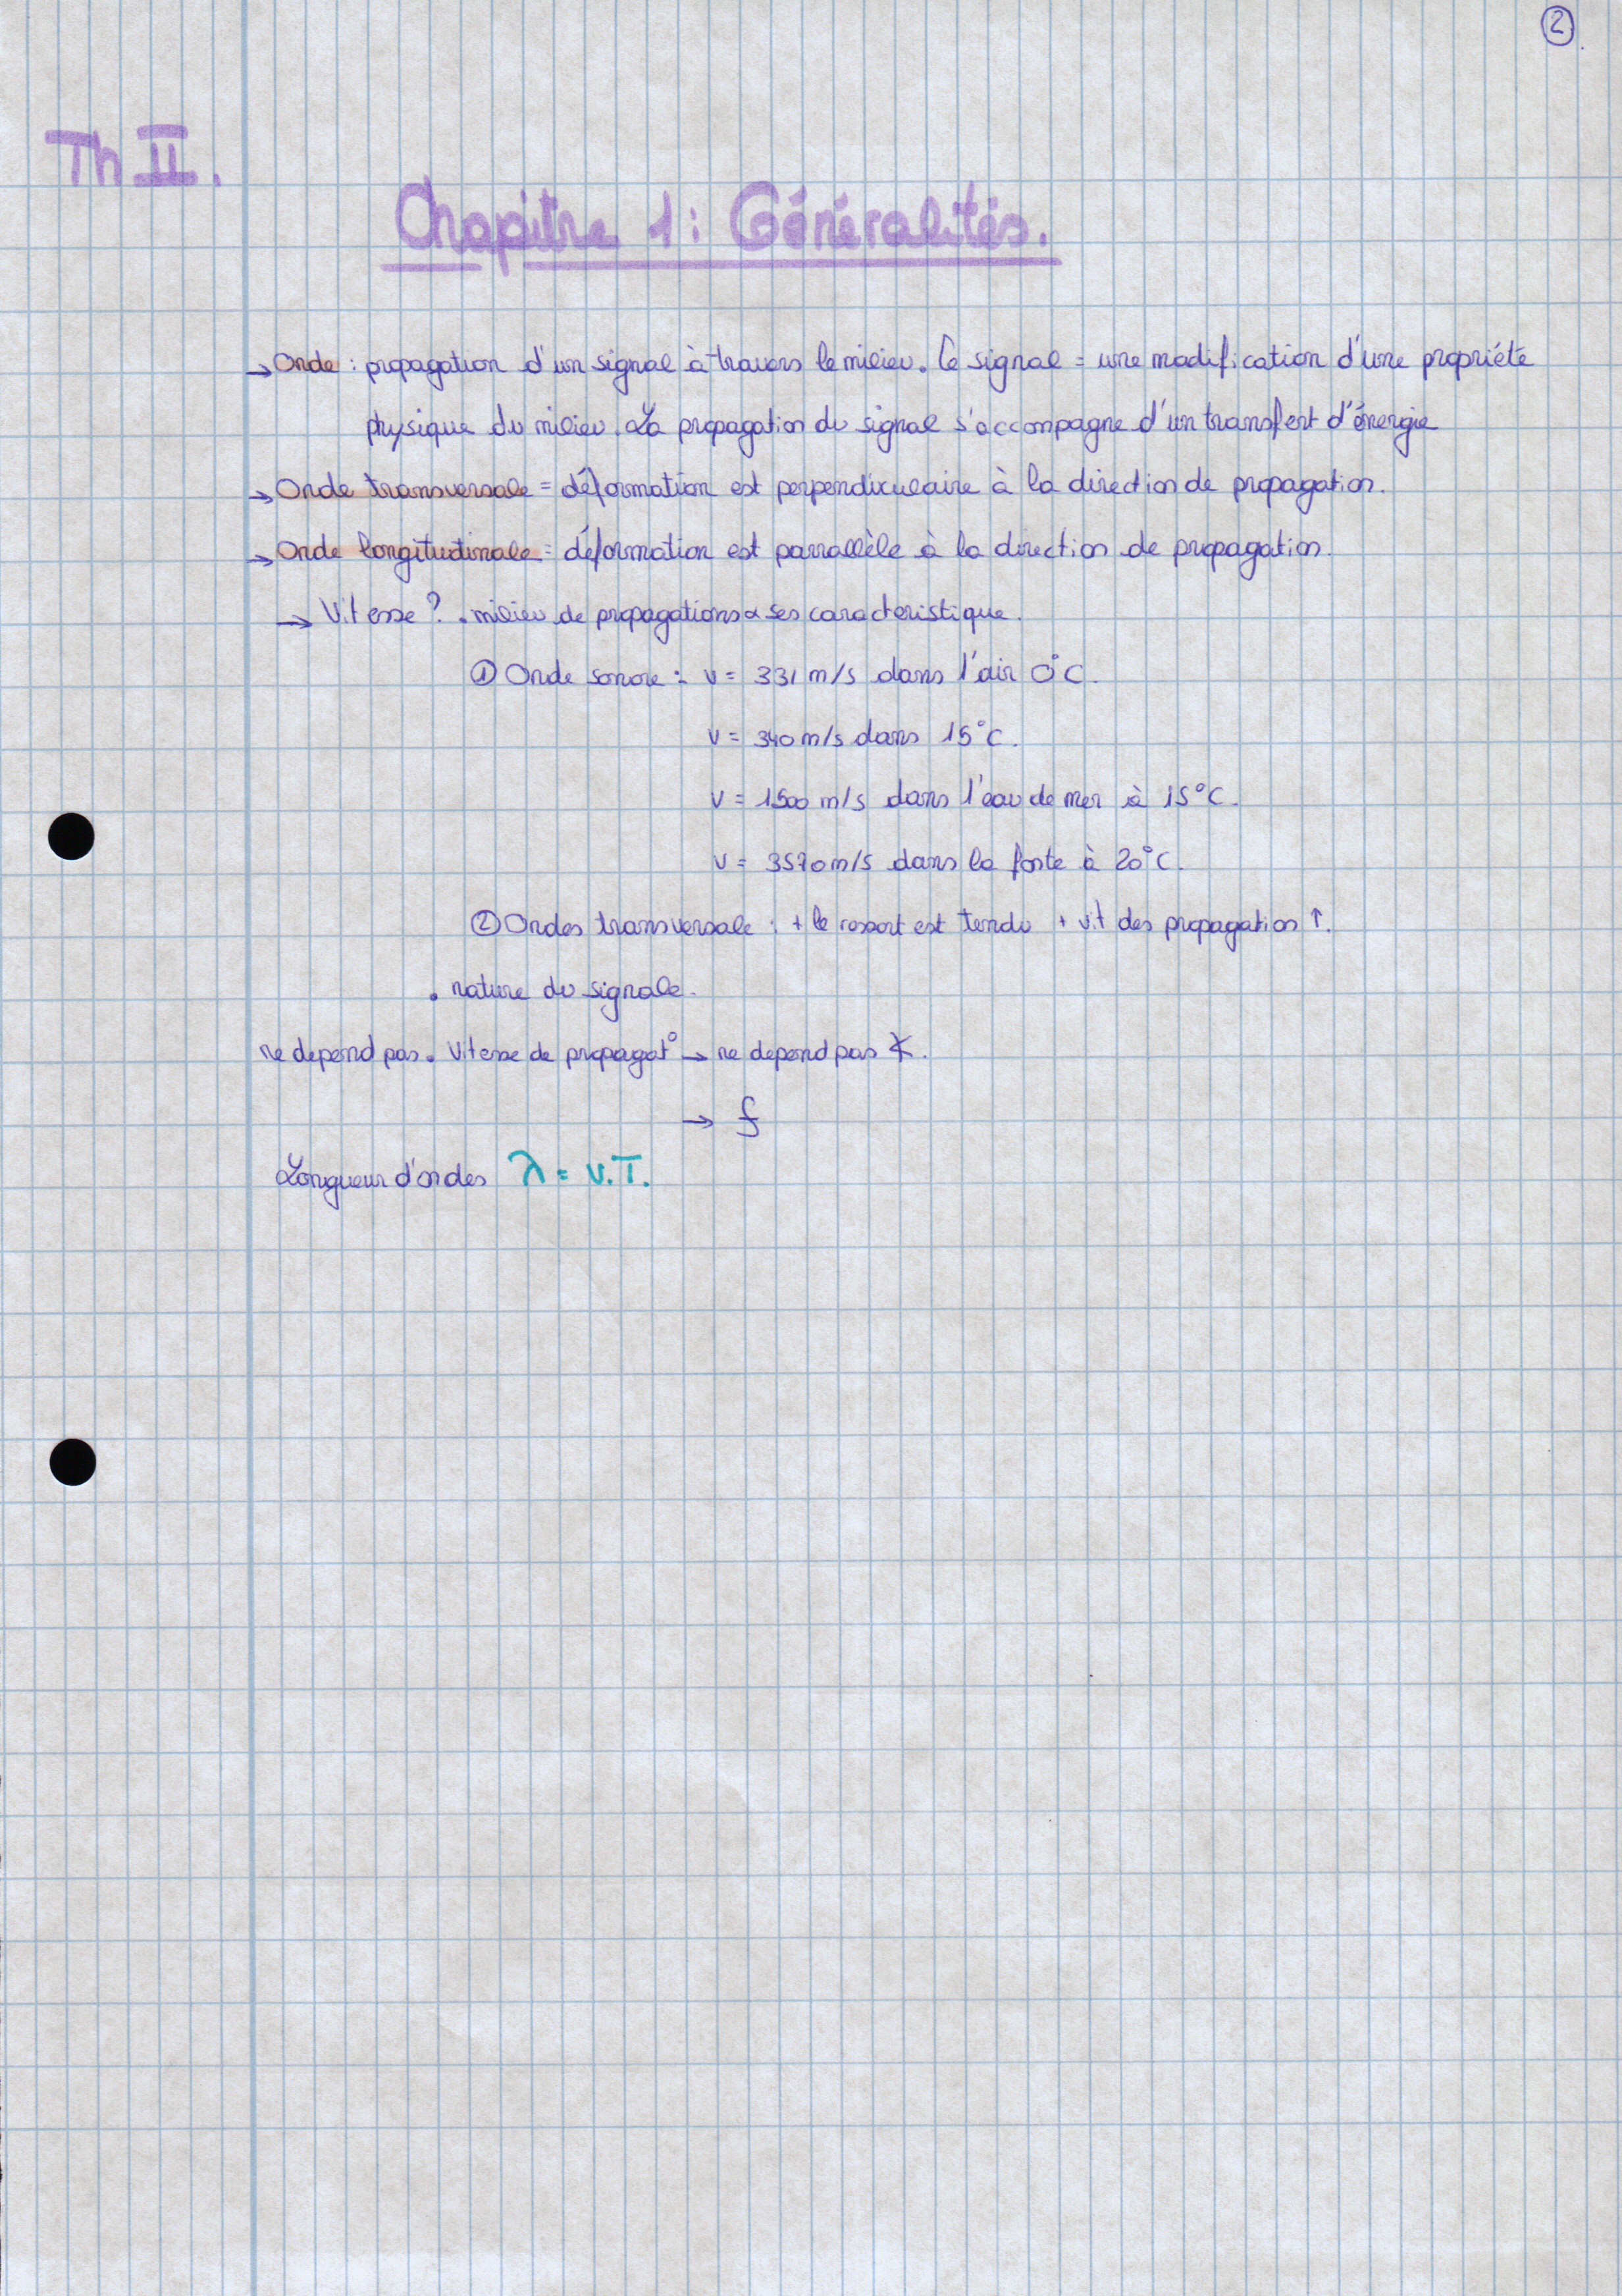 2
Th II.
Chapitre 1 : Généralités.
→ Onde : propagation d'un signal à travers le milieu. Ce signal = une modification d'une propriéte
physique du milieu. La propagation du signal s'accompagne d'un transfert d'énergie
→ Onde transversale = déformation est perpendiculaire à la direction de propagation.
→ Onde longitudinale = déformation est parralèle à la direction de propagation.
→ Vitesse ? . milieu de propagations ses caracteristique.
① Onde sonore : v = 331 m/s dans l'air 0°C.
v = 340 m/s dans 15°C.
v = 1500 m/s dans l'eau de mer à 15°C.
v = 3570 m/s dans la fonte à 20°C.
② Ondes transversale : + le ressort est tendu + vit des propagation ↑.
. nature du signale.
ne depend pas . Vitesse de propagat° → ne depend pas
→ f
Longueur d'ondes λ = v.T.